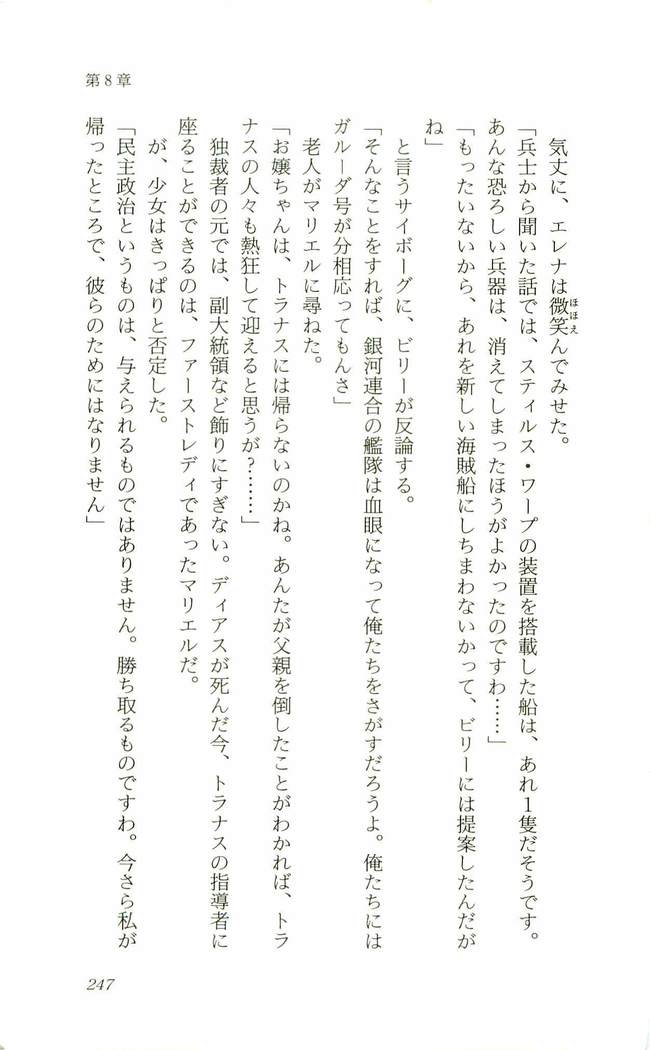 第8章
気丈に、エレナは微笑んでみせた。
ほほえ
「兵士から聞いた話では、スティルス・ワープの装置を搭載した船は、あれ1隻だそうです。
あんな恐ろしい兵器は、消えてしまったほうがよかったのですわ……」
「もったいないから、あれを新しい海賊船にしちまわないかって、ビリーには提案したんだが
ね」
と言うサイボーグに、ビリーが反論する。
「そんなことをすれば、銀河連合の艦隊は血眼になって俺たちをさがすだろうよ。俺たちには
ガルーダ号が分相応ってもんさ」
老人がマリエルに尋ねた。
「お嬢ちゃんは、トラナスには帰らないのかね。あんたが父親を倒したことがわかれば、トラ
ナスの人々も熱狂して迎えると思うが?……」
独裁者の元では、副大統領など飾りにすぎない。ディアスが死んだ今、トラナスの指導者に
座ることができるのは、ファーストレディであったマリエルだ。
が、少女はきっぱりと否定した。
「民主政治というものは、与えられるものではありません。勝ち取るものですわ。今さら私が
帰ったところで、彼らのためにはなりません」
247